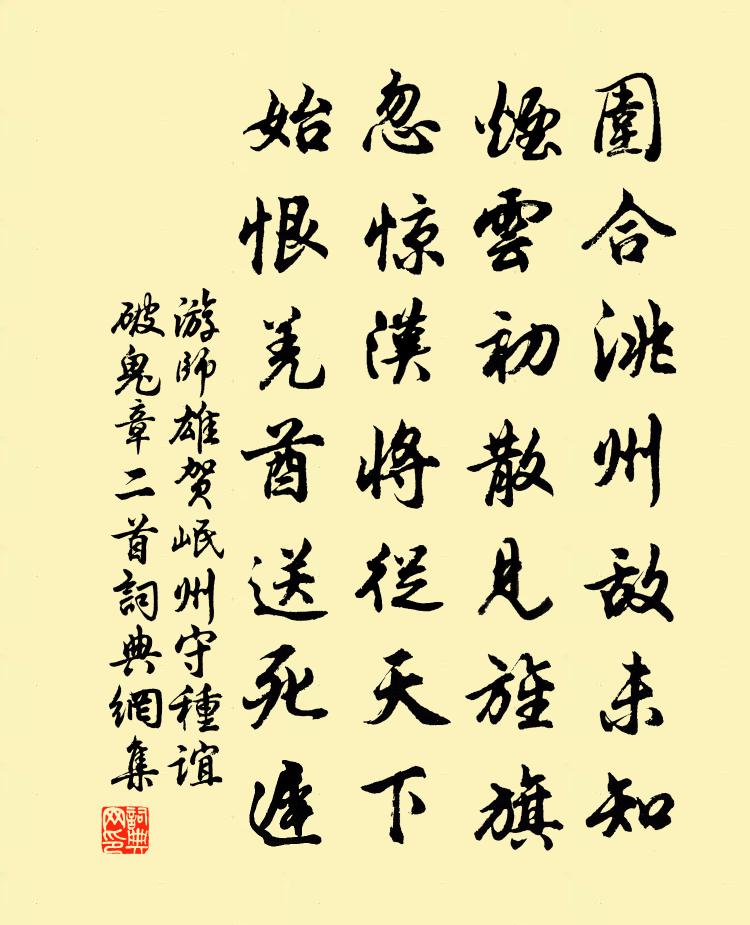 圍合洮州敌未知
煙雲初散見旌旗
忽惊漢將從天下
始恨羌酋送死遲
游師雄贺岷州守種谊
破鬼章二首詞典網集
詞典网印